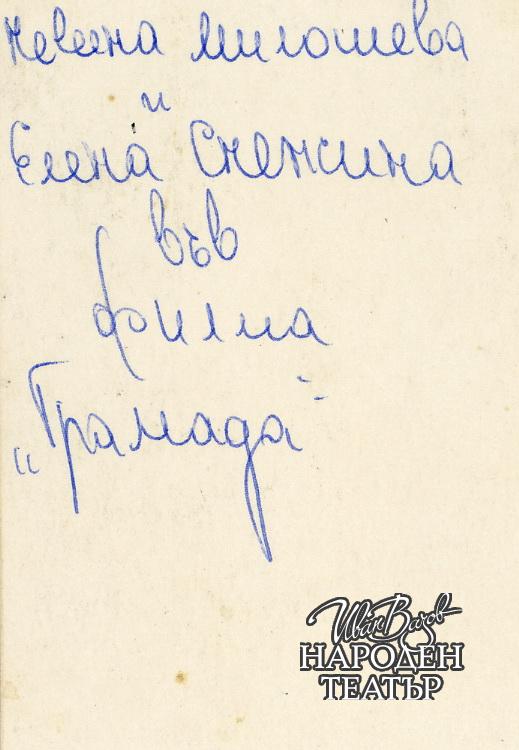 Невена Милошева
и
Елена Снежина
във
филма
„Грамада"
Иван Вазов
НАРОДЕН
ТЕАТЪР